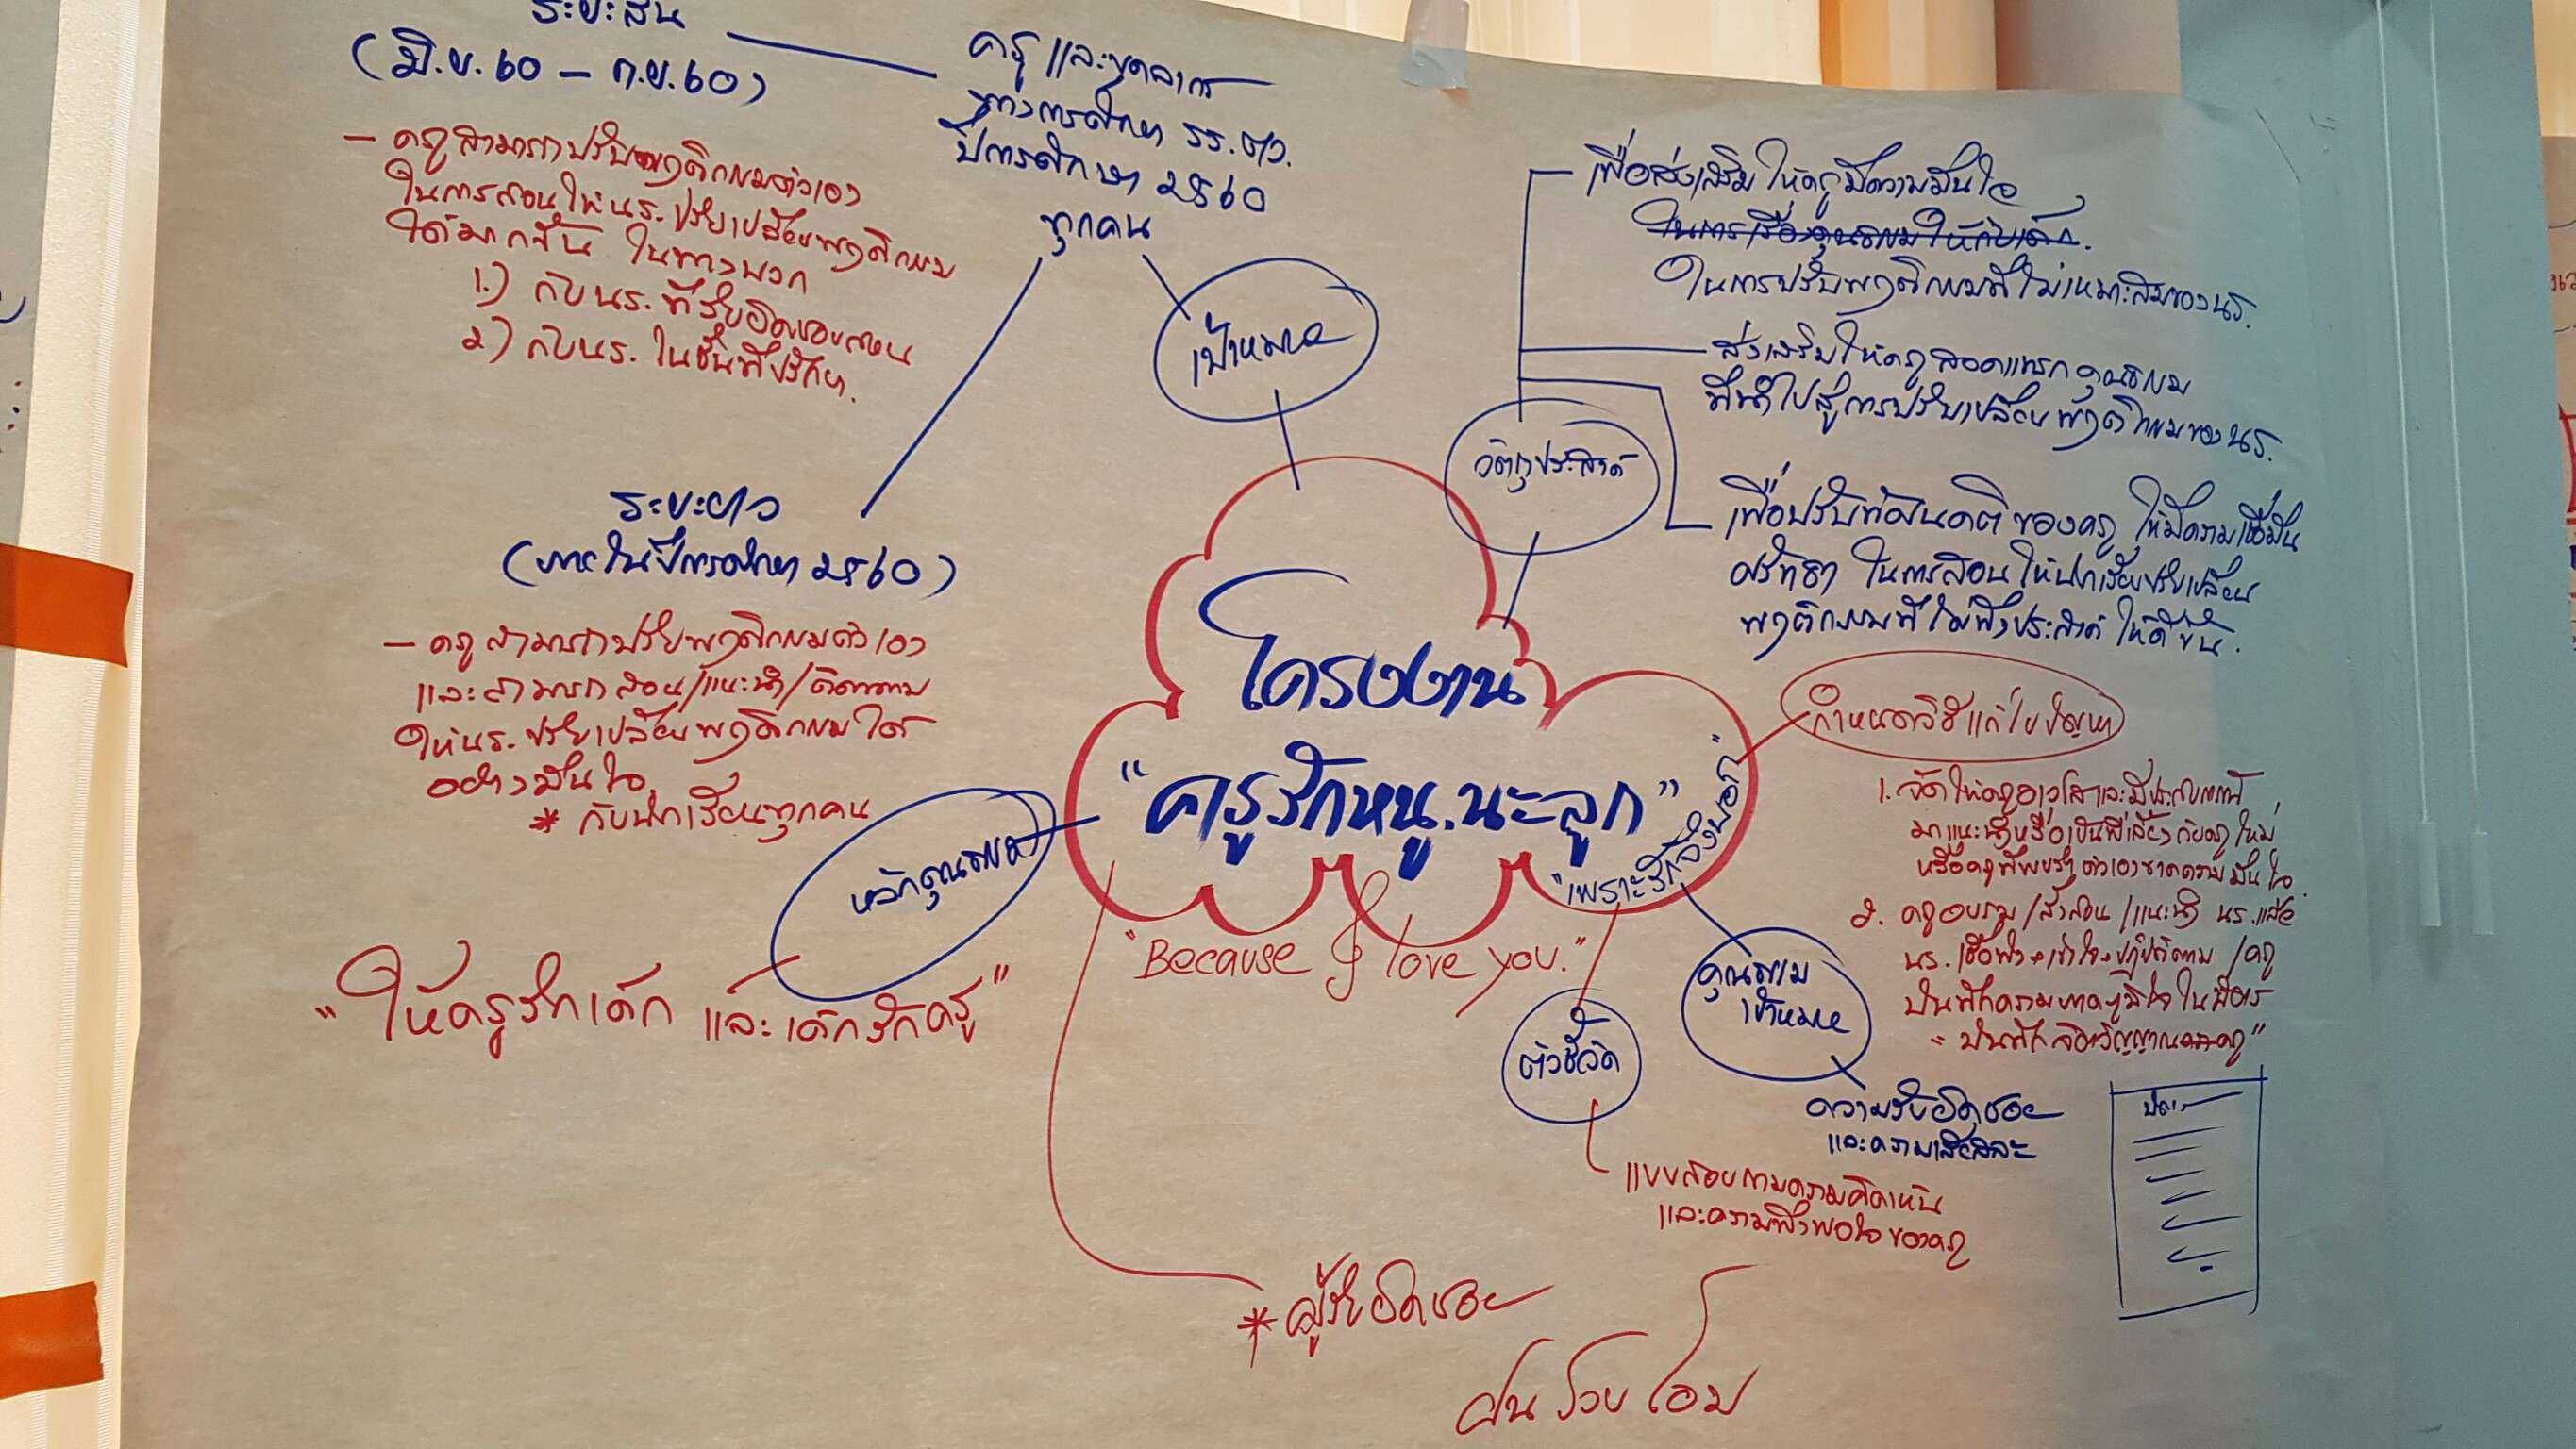 ระยะสั้น
(มิ.ย. 60 – ก.ย. 60)
ครู และบุคลากร
ทางการศึกษา รร.
ปีการศึกษา 2560
ทุกคน
– ครูสามารถปรับพฤติกรรมตัวเอง
ในการสอนให้ นร. ปรับเปลี่ยนพฤติกรรม
ได้มากขึ้น ในทางบวก
1.) กับ นร. ที่รับผิดชอบสอน
2) กับ นร. ในชั้นที่ปรึกษา.
เป้าหมาย
ระยะยาว
(ภายในปีการศึกษา 2560)
– ครูสามารถปรับพฤติกรรมตัวเอง
และสามารถ สอน/แนะนำ/ติดตาม
ให้ นร. ปรับเปลี่ยนพฤติกรรมได้
อย่างมั่นใจ
* กับนักเรียนทุกคน
วัตถุประสงค์
เพื่อส่งเสริมให้ครูมีความมั่นใจ
ในการปรับพฤติกรรมที่ไม่เหมาะสมของ นร.
ส่งเสริมให้ครูสอดแทรกคุณธรรม
ที่นำไปสู่การปรับเปลี่ยนพฤติกรรมของ นร.
เพื่อปรับทัศนคติ ของครู ให้มีความเชื่อมั่น
ศรัทธา ในการสอนให้นักเรียนปรับเปลี่ยน
พฤติกรรมที่ไม่พึงประสงค์ ให้ดีขึ้น.
โครงงาน
"ครูรักหนู.นะลูก"
"เพราะรักจึงบอก"
"Because I love you."
กำหนดวิธีแก้ไขปัญหา
1. จัดให้ครูอาวุโสและมีประสบการณ์
มาแนะนำหรือเป็นพี่เลี้ยง กับครูใหม่
หรือครูที่พบว่า ตัวเองขาดความมั่นใจ
2. ครูอบรม/สั่งสอน/แนะนำ นร. แล้ว
นร. เชื่อฟัง + เข้าใจ + ปฏิบัติตาม / ครู
บันทึกความภาคภูมิใจ ใน
"บันทึกจิตวิญญาณครู"
หลักคุณธรรม
"ให้ครูรักเด็ก และเด็กรักครู"
คุณธรรม
เป้าหมาย
ความรับผิดชอบ
และความเสียสละ
ตัวชี้วัด
แบบสอบถามความคิดเห็น
และความพึงพอใจ ของครู
* ผู้รับผิดชอบ